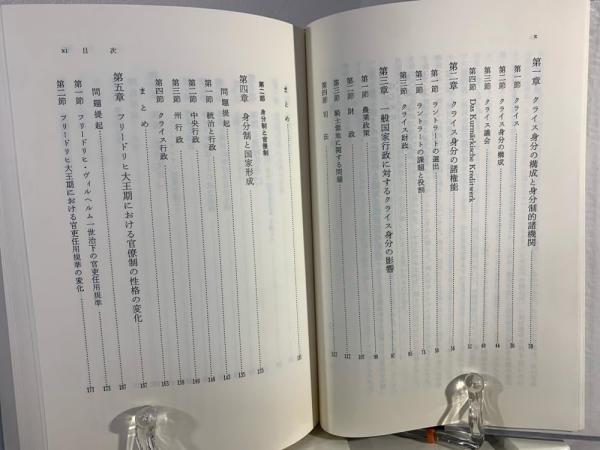 x
第一章 クライス身分の構成と身分制的諸機関
第一節 クライス
第二節 クライス身分の構成
第三節 クライス議会
第四節 Das Kurmärkische Kreditwerk
第二章 クライス身分の諸権能
第一節 ラントラートの選出
第二節 ラントラートの課題と役割
第三節 クライス財政
第三章 一般国家行政に対するクライス身分の影響
第一節 農業政策
第二節 財政
第三節 騎士領単に関する問題
第四節 司法
xi 目次
まとめ
第二節 身分制と官僚制
第四章 身分制と国家形成
問題提起
第一節 統治と行政
第二節 中央行政
第三節 州行政
第四節 クライス行政
まとめ
第五章 フリードリヒ大王期における官僚制の性格の変化
問題提起
第一節 フリードリヒ・ヴィルヘルム一世治下の官吏任用規準
第二節 フリードリヒ大王期における官吏任用規準の変化